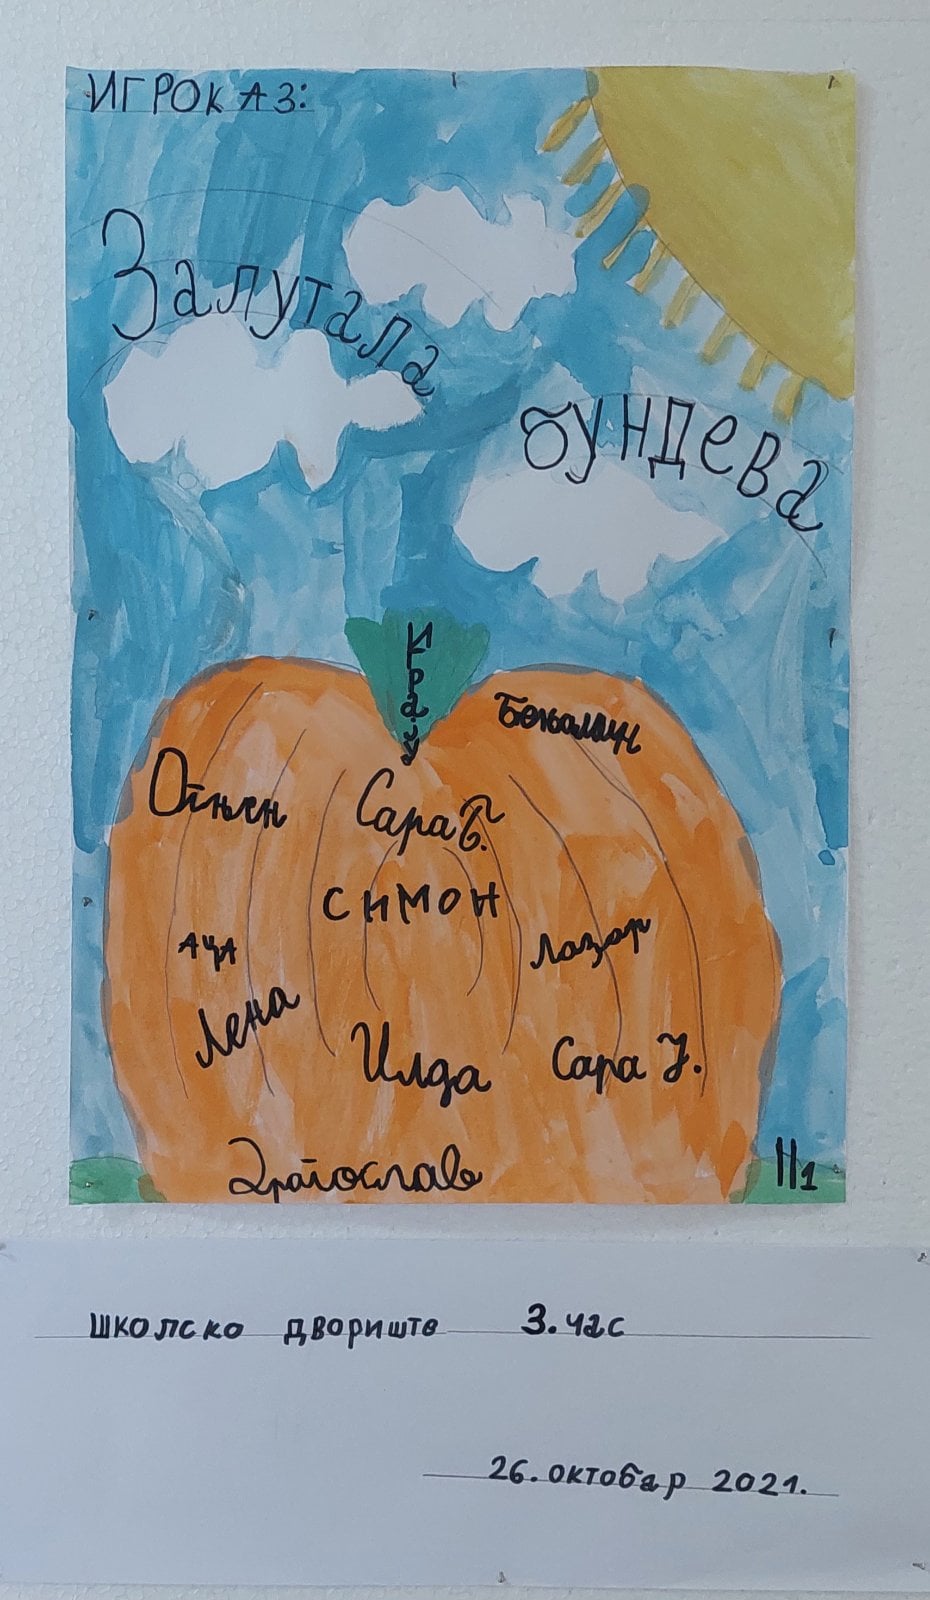 ИГРОКАЗ:
Залутала
бундева
Играју
Бењамин
Огњен
Сара Б.
СИМОН
АЦА
Лазар
Лена
Илда
Сара Ј.
Драгослав
II1
школско двориште 3. час
26. октобар 2021.